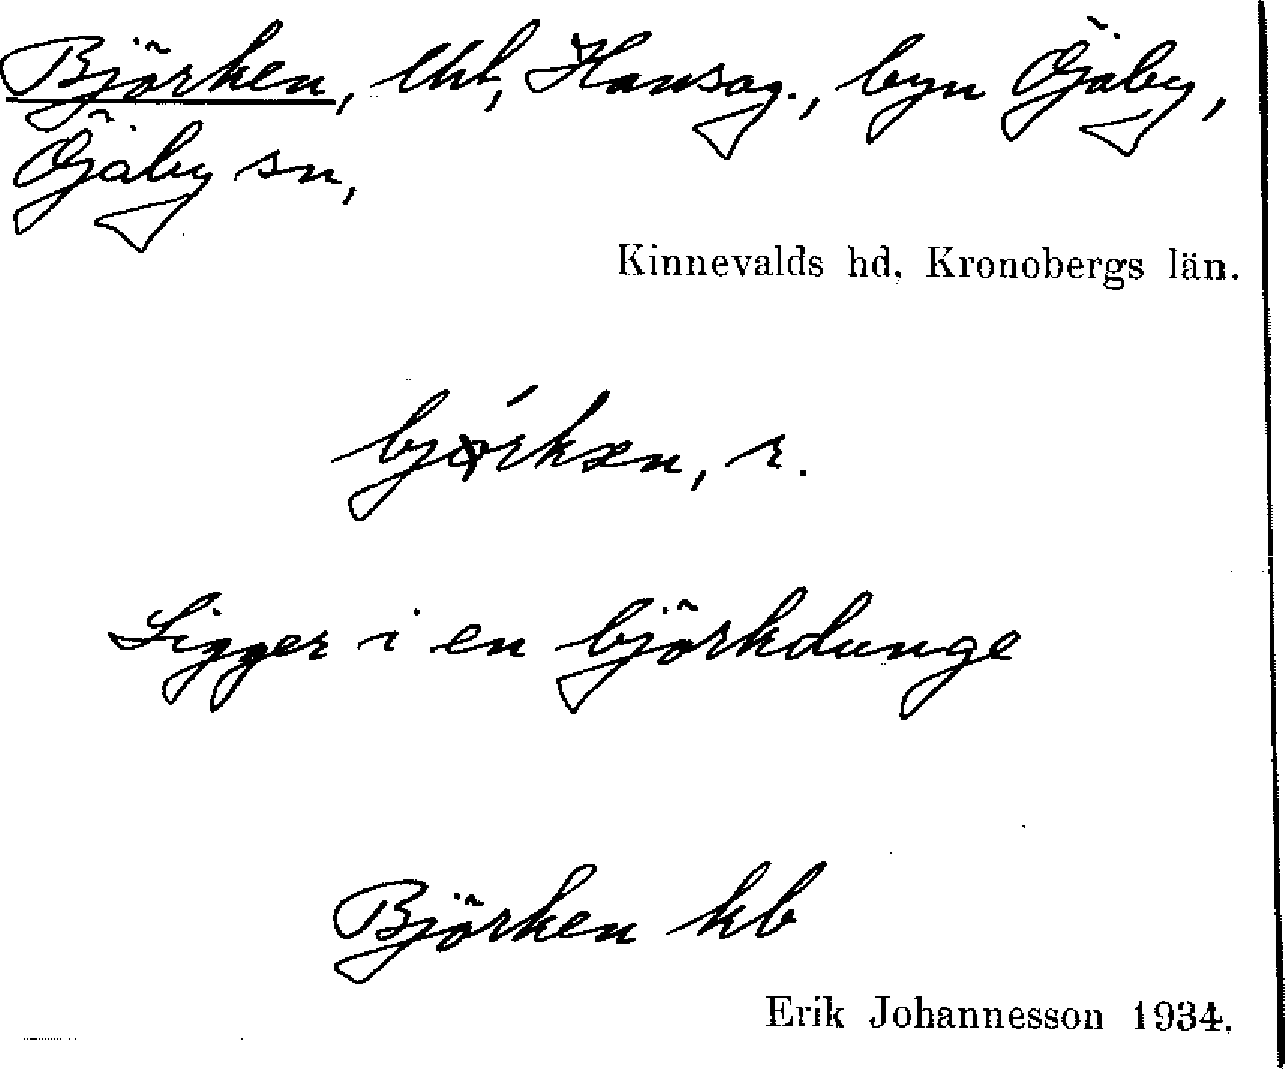 Björken, lht, Hansag., byn Öjaby,
Öjaby sn,
Kinnevalds hd, Kronobergs län.
bjǿrkæn, r.
Ligger i en björkdunge
Björken kb
Erik Johannesson 1934.